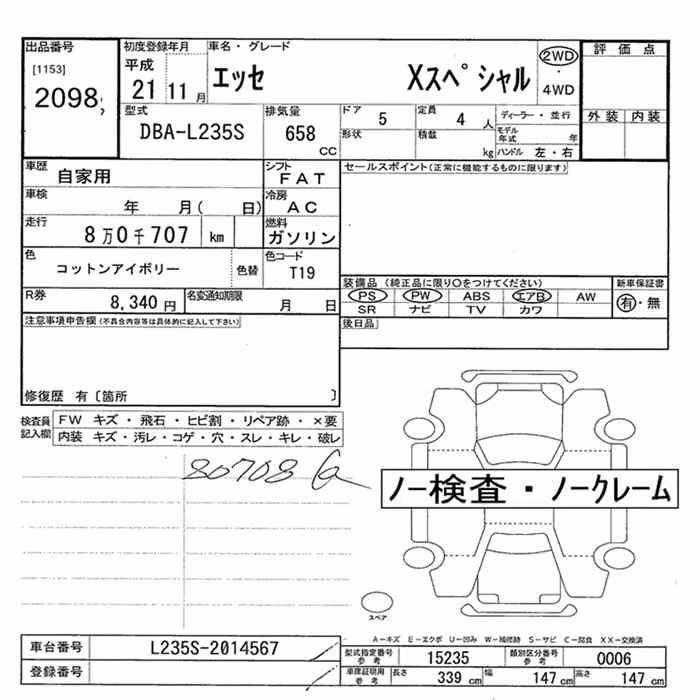 出品番号
[1153]
2098
初度登録年月
平成
21 11 月
車名・グレード
エッセ Xスペシャル
2WD
・
4WD
評価点
外装 内装
型式
DBA-L235S
排気量
658
CC
ドア 5
形状
定員 4 人
積載 kg
ディーラー・並行
モデル年式 年
ハンドル 左・右
車歴
自家用
シフト
FAT
車検
年 月( 日)
冷房
AC
走行
8万0千707 km
燃料
ガソリン
色
コットンアイボリー
色替
色コード
T19
R券
8,340 円
名変通知期限
月 日
セールスポイント(正常に機能するものに限ります)
装備品(純正品に限り○をつけてください)
PS PW ABS エアB AW
SR ナビ TV カワ
新車保証書
有・無
後日品
注意事項申告欄(不具合内容等は具体的に記入して下さい)
修復歴 有〔箇所 〕
検査員記入欄
FW キズ・飛石・ヒビ割・リペア跡・×要
内装 キズ・汚レ・コゲ・穴・スレ・キレ・破レ
80708
ノー検査・ノークレーム
スペア
A-キズ E-エクボ U-凹み W-補修跡 S-サビ C-腐食 XX-交換済
車台番号
L235S-2014567
登録番号
型式指定番号
参考
15235
類別区分番号
参考
0006
車庫証明用
参考
長さ 339 cm
幅 147 cm
高さ 147 cm